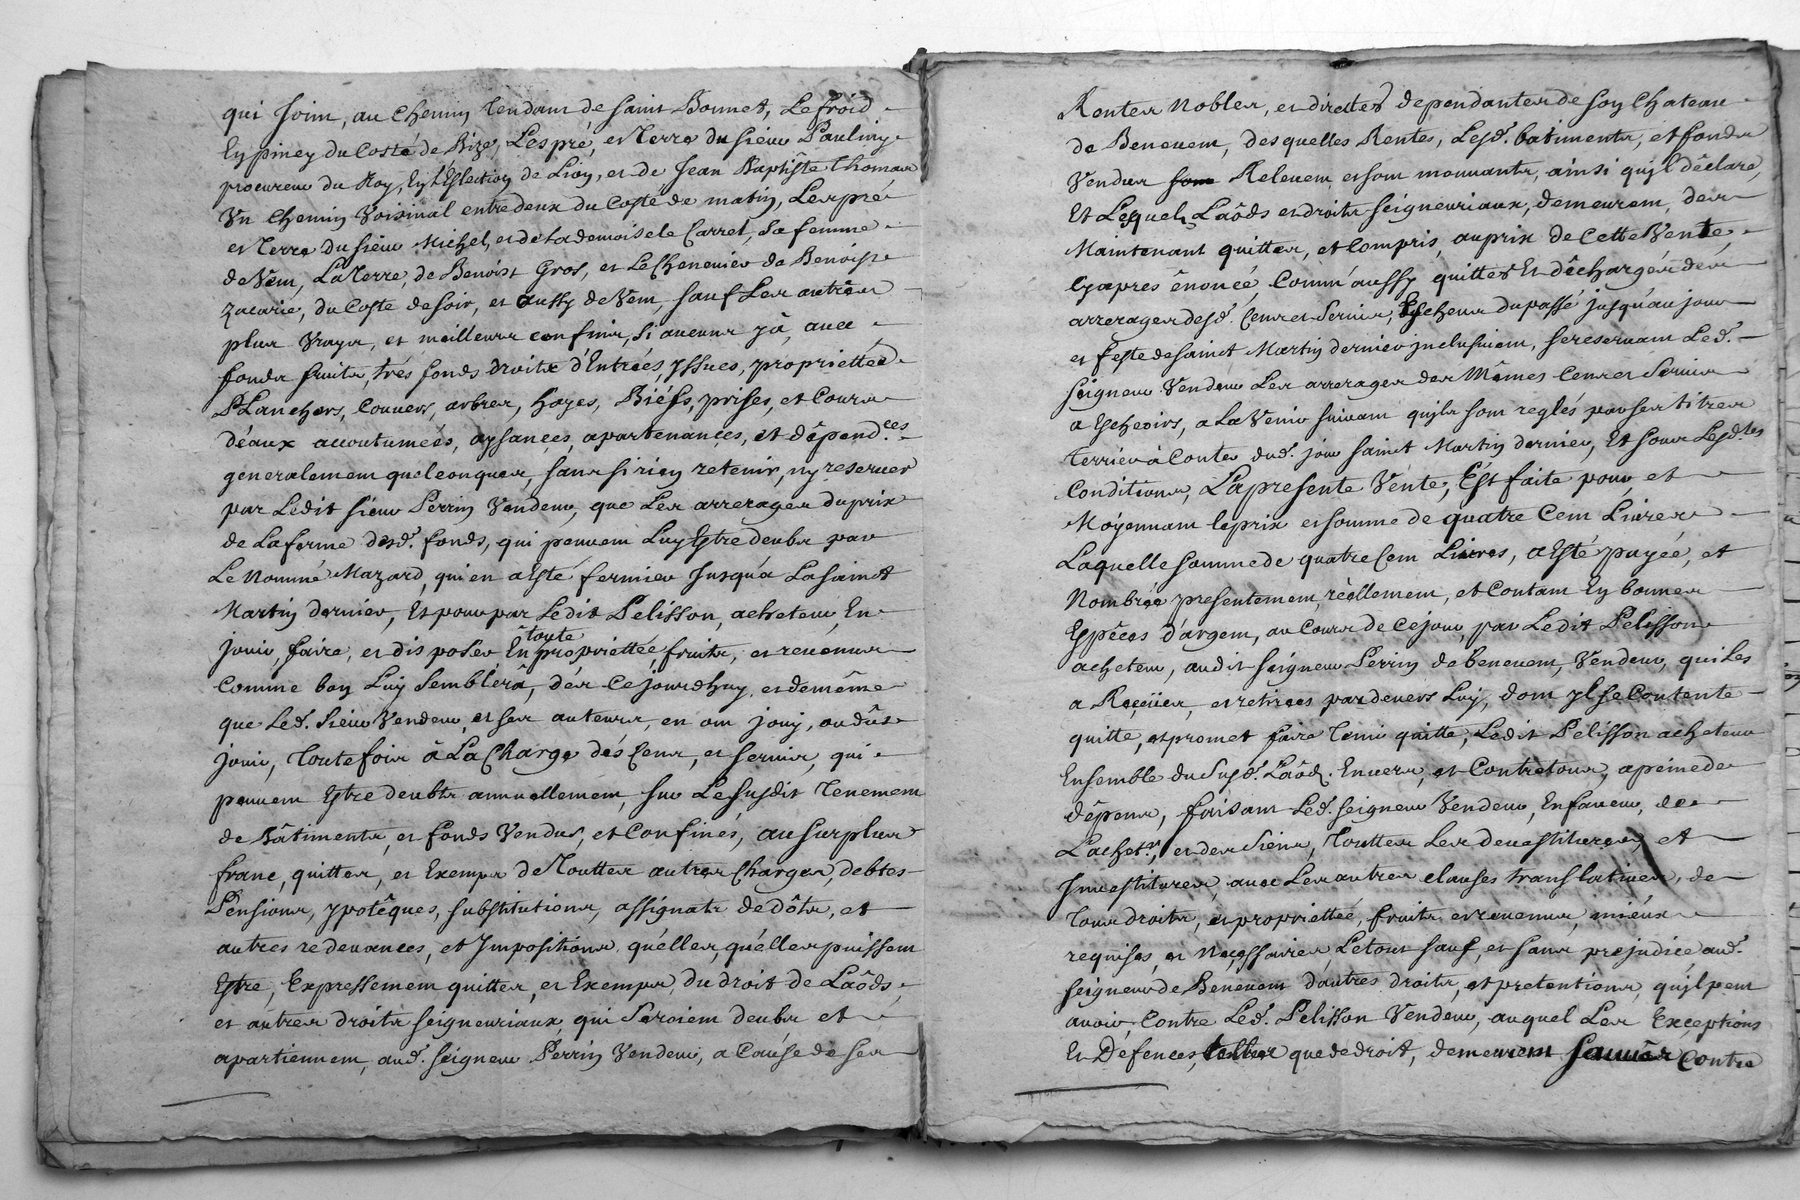 qui joint, au chemin tendant, de saint Bonnet, Le froid
En piney du Costé de Bize, Lespré, et terre du sieur Paulin
procureur du Roy, En l'Eslection de Lion, et de Jean Baptiste thomas
Un chemin Voisinal entredeux du Costé de matin, Les pré
et terre du sieur Michel, et de Lademoiselle Carret, sa femme
de Vent, La terre, de Benoist Gros, et Le chenevier de Benoist
Zacarie, du Costé de soir, et aussy de Vent, sauf Les autres
plus Vrays, et meilleurs confins, si aucuns y à, avec
fonds fruits, trés fonds droits d'Entrées, yssues, propriettés
PLanchers, Couvers, arbres, hayes, Biéfs, prises, et Cours
d'éaux accoutumées, aysances, apartenances, et dêpend.ces
generalement quelconques, sâns si rien retenir, ny reserver
par Ledit sieur Perrin Vendeur, que Les arrerages du prix
de La ferme desd. fonds, qui peuvent Luy Estre deubs par
Le Nommé Mazard, qui en a Esté fermier Jusqu'a La sainct
Martin dernier, Et pour par Ledit Pelisson, acheteur, En
jouir, faire, et disposer En toute propriettée, fruits, et revenus
Comme bon Luy Semblérâ, dés Ce jourdhuy, et demême
que Led. Sieur Vendeur, et ses auteurs, en ont jouy, ou dûs
jouir, Toutefois â La Charge dés Cens, et servis, qui
peuvent Estre deubts annuellement, sur Le susdit Tenement
de Bâtiments, et fonds Vendus, et Confinés, au surplus
franc, quittes, et Exempt de Touttes autres Charges, debtes
Pensions, ypotêques, substitutions, assignats de dôts, et
autres redevances, et Impositions quélles, quélles puissent
Estre, Expressement quittes, et Exempts, du droit de Laôds,
et autres droits seigneuriaux, qui Seroient deubs et
apartiennent, aud. seigneur Perrin Vendeur, a Caúse de ses
Rentes Nobles, et directes dependantes de son Chateau
de Benevent, desquelles Rentes, Lesd. batiments, et fonds
Vendus sont Relevent et sont mouvants, ainsi qu'jl dêclare,
Et Lesquels Laôds et droits seigneuriaux, demeurent, dés
Maintenant quittes, et Compris, au prix de Cette Vente,
Cy aprés ênoncé, Comm'aussy quittes Et dêchargés dés
arrerages desd. Cens et Servis, Escheus du passé jusqu'au jour
et feste de sainct Martin dernier jnclusivem, se reservant Led.
seigneur Vendeur Les arrerages des Mêmes Cens et Servis
a Escheoirs, a La Venir suivant qu'jls sont reglés par ses titres
terriers â Conter dud. jour sainct Martin dernier, Et sous Lesd.tes
Conditions, La presente Vente, Est faite pour, et
Moyennant le prix et somme de quatre Cent Livres
Laquelle somme de quatre Cent Livres, a Esté payée, et
Nombrée presentement, rèellement, et Contant En bonnes
Espêces d'argent, au Cours de Ce jour, par Ledit Pelisson
acheteur, audit seigneur Perrin de Benevent, Vendeur, qui Les
a Reçües, et retirées pardevers Luy, dont yl se Contente
quitte, et promet faire Tenir quitte, Ledit Pelisson acheteur
Ensemble du Susd. Laôd. Envers, et Contretous, apeine de
dêpens, faisant Led. seigneur Vendeur, En faveur, de
L'achet.r, et des Siens, Touttes Les devestitures, et
Jnvestitures, avec Les autres clauses translatives, de
Tous droits, et propriettée, fruits, et revenus, mieúx
requises, et Nêçessaires Le tout sauf, et sans, prejudice aud.
seigneur de Benevent d'autres droits, et pretentions, qu'jl peut
avoir Contre Led. Pelisson Vendeur, auquel Les Exceptions
Et Défences, telles que de droit, demeurent sauvês Contre